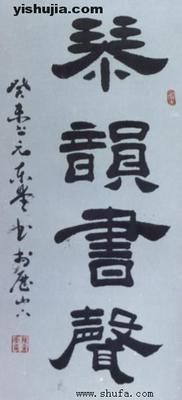 yishujia.com
琴韻書聲
癸未上元東堂書於歷山下
www.shufa.com